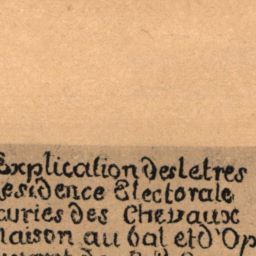 Explication des letres
residence Electorale
curies des Chevaux
maison au bal et d'Op